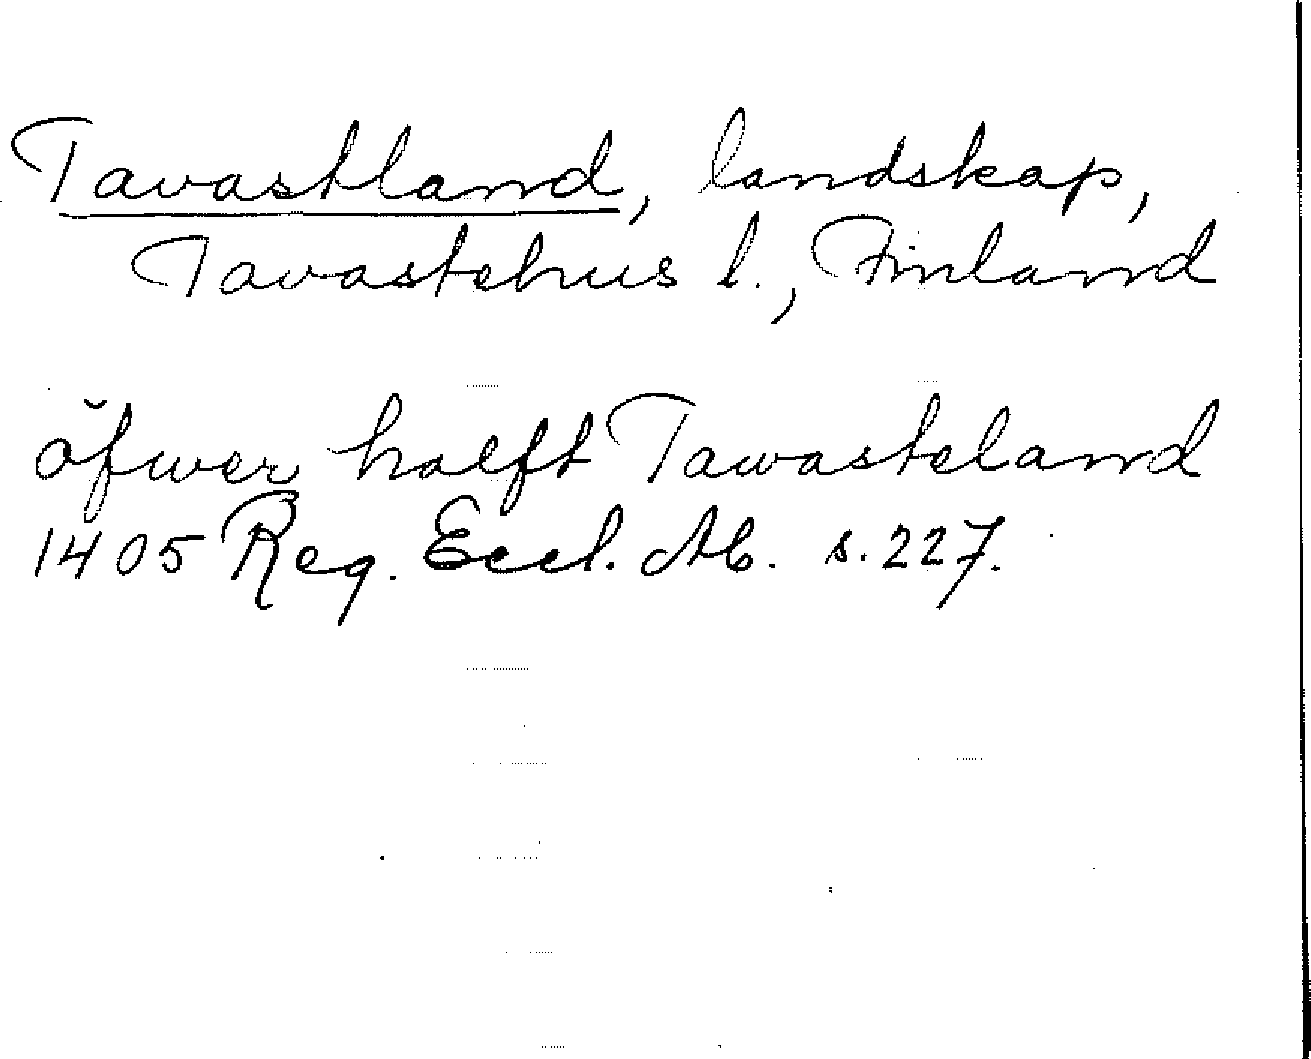 Tavastland, landskap,
Tavastehus l., Finland
öfwer halft Tawasteland
1405 Reg. Eccl. Ab. s. 227.